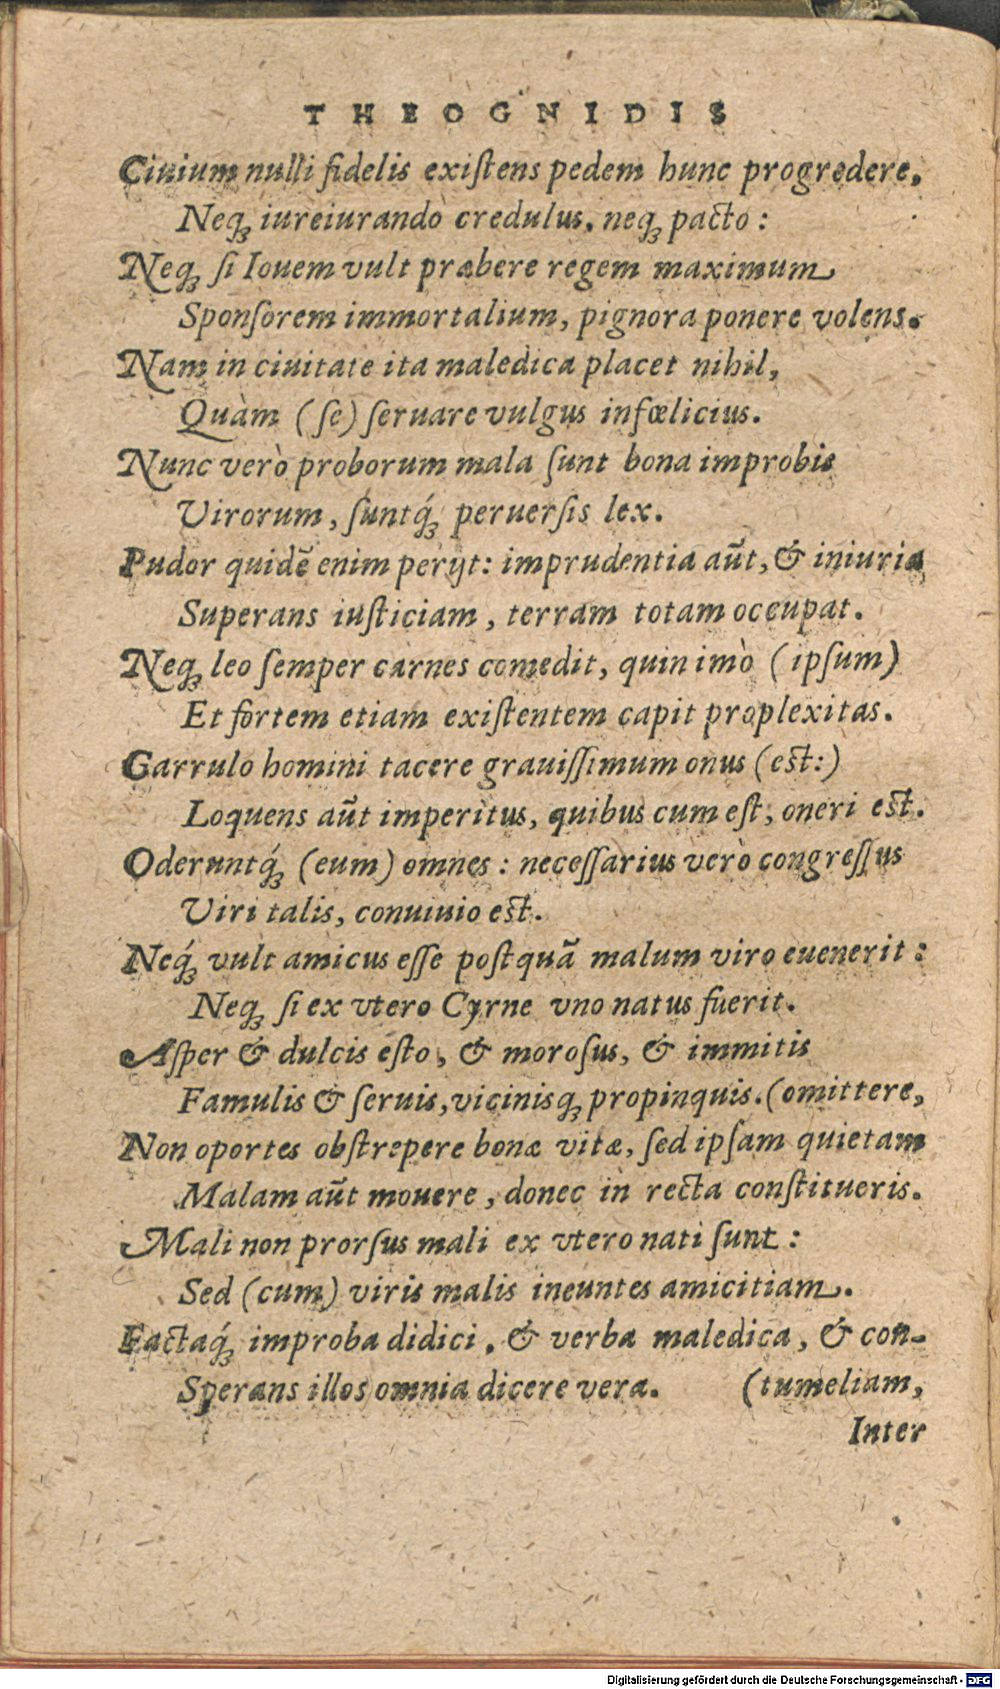 THEOGNIDIS
Ciuium nulli fidelis exiſtens pedem hunc progredere,
Neqꝫ iureiurando credulus, neqꝫ pacto:
Neqꝫ ſi Iouem vult præbere regem maximum
Sponſorem immortalium, pignora ponere volens.
Nam in ciuitate ita maledica placet nihil,
Quàm (ſe) ſeruare vulgus infœlicius.
Nunc verò proborum mala ſunt bona improbis
Virorum, ſuntq́ꝫ peruerſis lex.
Pudor quidē enim perijt: imprudentia aūt, & iniuria
Superans iuſticiam, terram totam occupat.
Neqꝫ leo ſemper carnes comedit, quin imò (ipſum)
Et fortem etiam exiſtentem capit proplexitas.
Garrulo homini tacere grauiſſimum onus (eſt:)
Loquens aūt imperitus, quibus cum eſt, oneri eſt.
Oderuntq́ꝫ (eum) omnes: neceſſarius verò congreſſus
Viri talis, conuiuio eſt.
Neq́ꝫ vult amicus eſſe poſtquā malum viro euenerit:
Neqꝫ ſi ex vtero Cyrne vno natus fuerit.
Aſper & dulcis eſto, & moroſus, & immitis
Famulis & ſeruis, vicinisqꝫ propinquis. (omittere,
Non oportes obſtrepere bonæ vitæ, ſed ipſam quietam
Malam aūt mouere, donec in recta conſtitueris.
Mali non prorſus mali ex vtero nati ſunt:
Sed (cum) viris malis ineuntes amicitiam.
Factaq́ꝫ improba didici, & verba maledica, & con-
Sperans illos omnia dicere vera. (tumeliam,
Inter
Digitalisierung gefördert durch die Deutsche Forschungsgemeinschaft - DFG